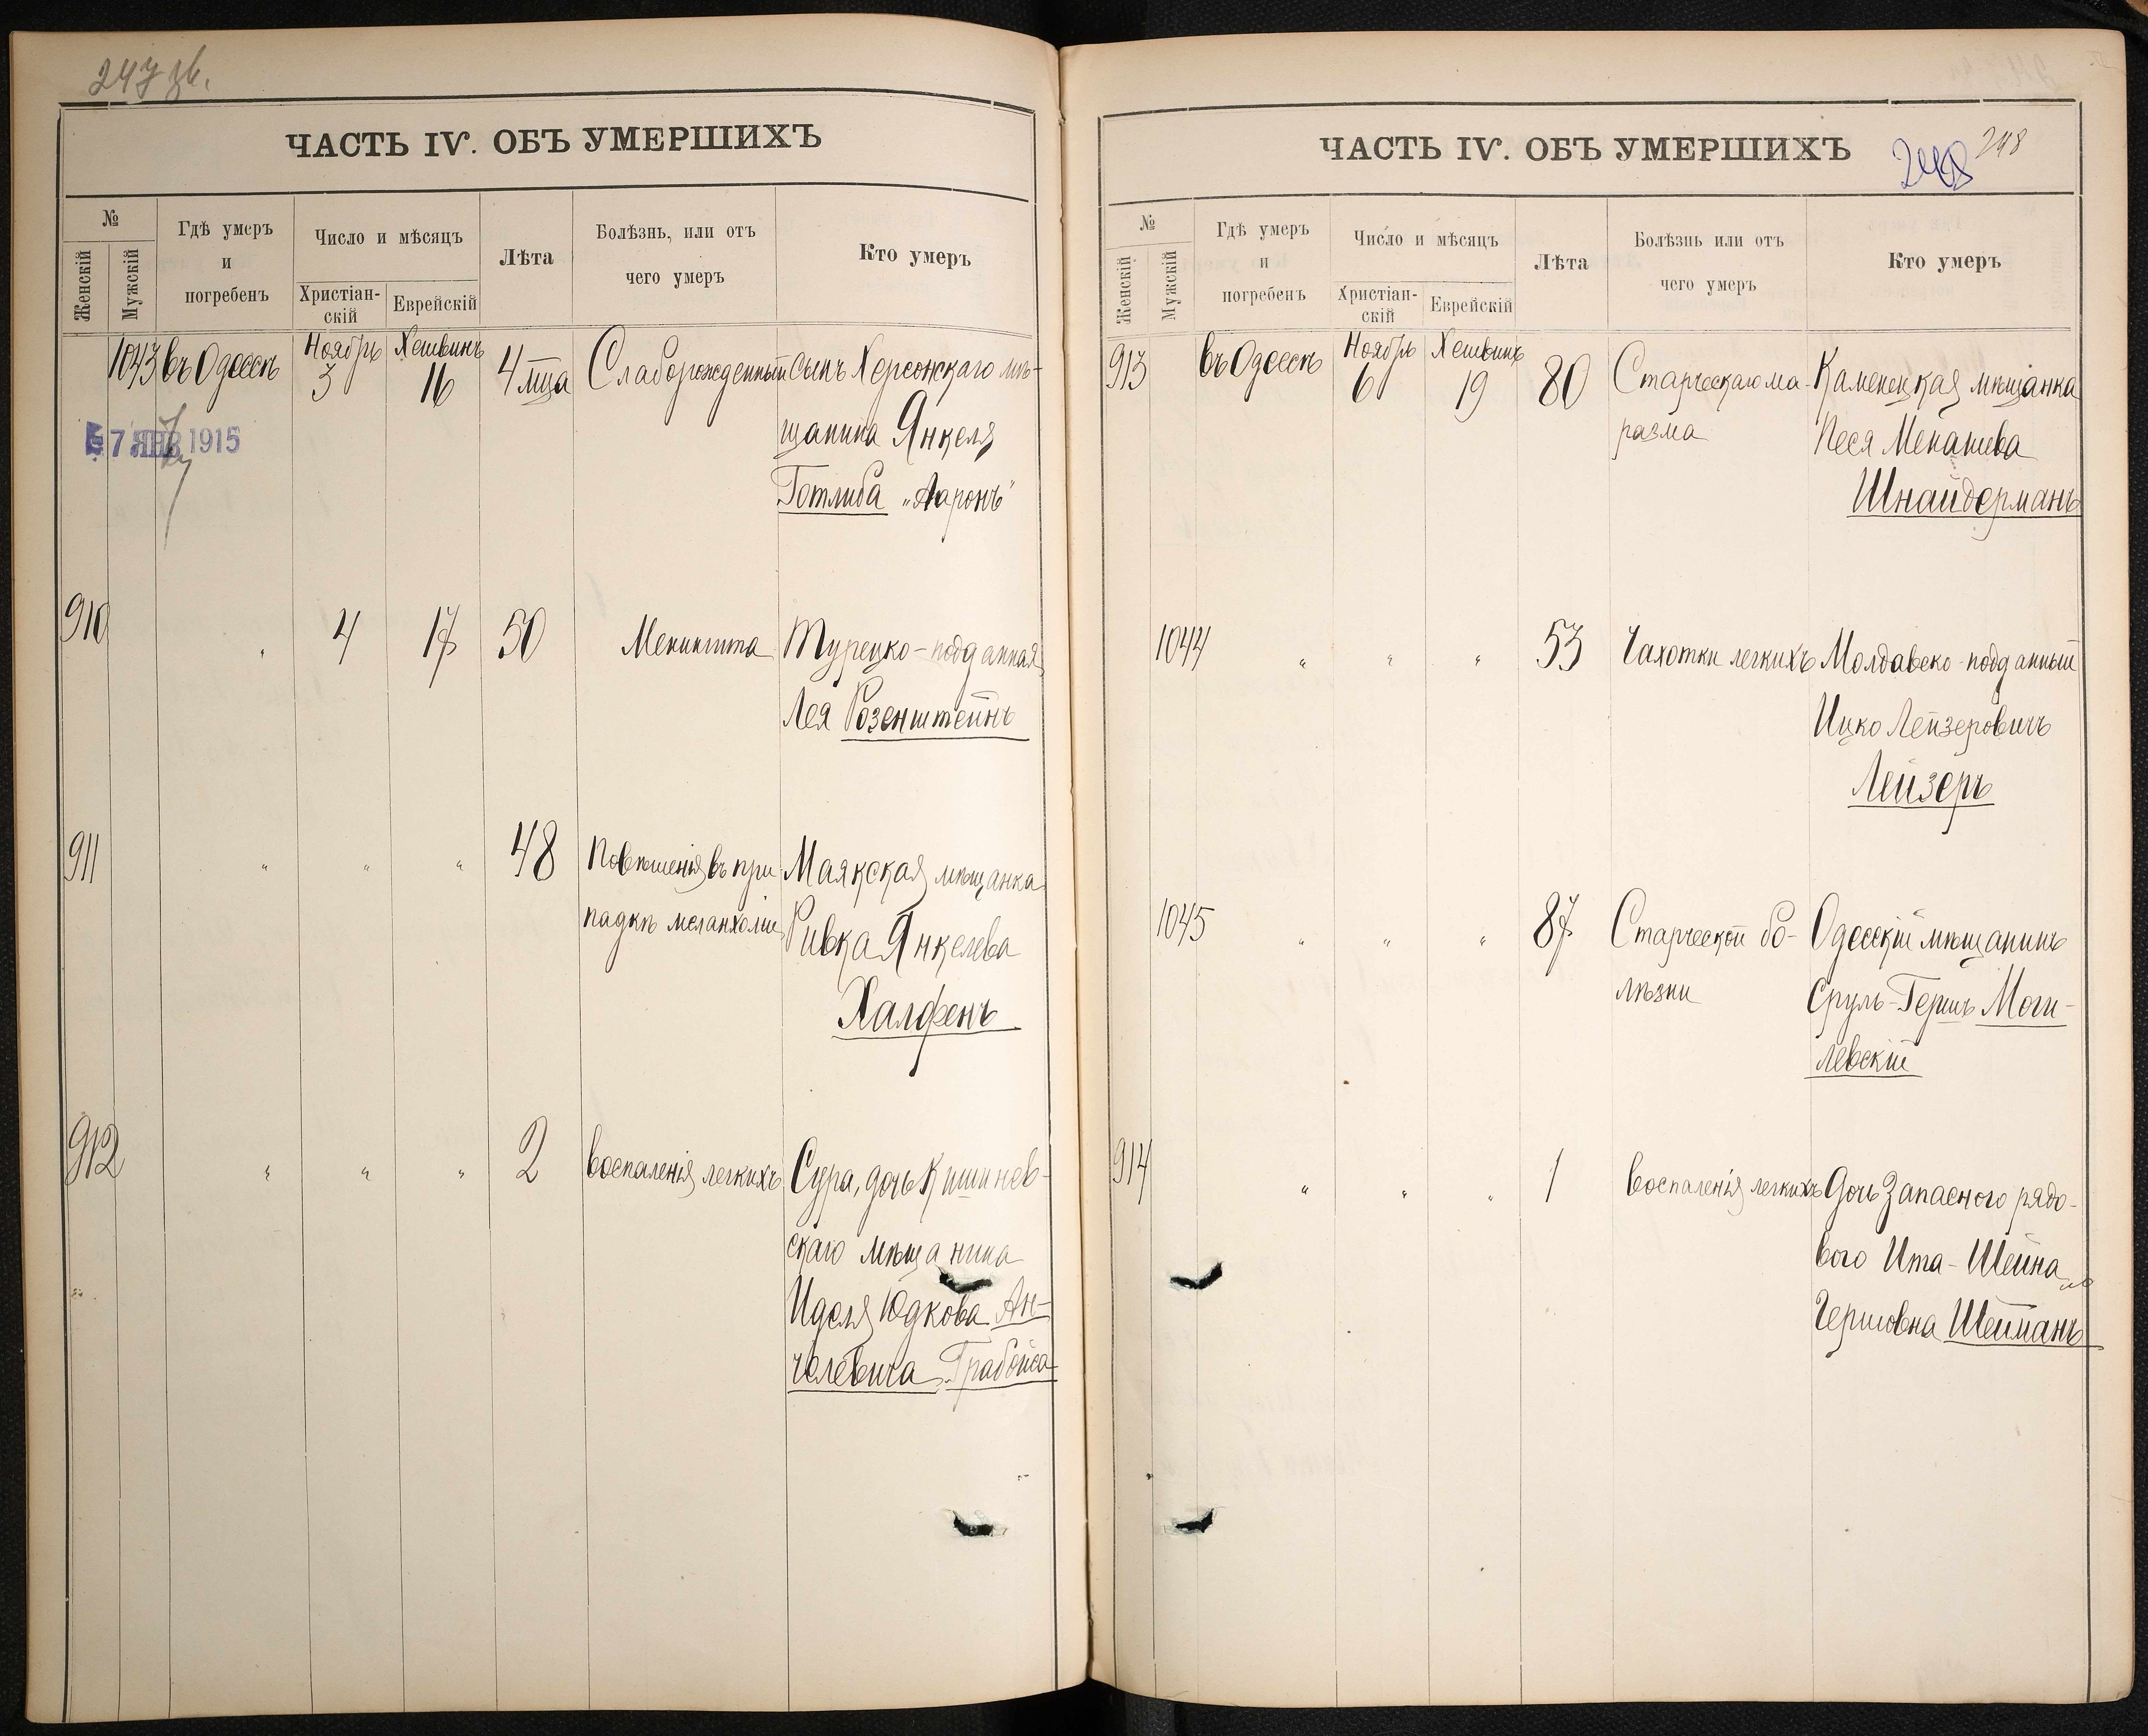 247 зв.
ЧАСТЬ IV. ОБЪ УМЕРШИХЪ
№
Женскій
Мужскій
Гдѣ умеръ
и
погребенъ
Число и мѣсяцъ
Христіан-
скій
Еврейскій
Лѣта
Болѣзнь, или отъ
чего умеръ
Кто умеръ
1043 въ Одессѣ Ноябрь 3 Хешвинъ 16 4 мца Слаборожденный сынъ Херсонскаго мѣ-
щанина Янкеля
Готлиба „Ааронъ"
7 ЯНВ 1915
910 „ 4 17 50 Менингита Турецко-подданная
Лея Розенштейнъ
911 „ „ „ 48 Повѣшенія въ при- Маякская мѣщанка
падкѣ меланхоліи Ривка Янкелева
Халфенъ
912 „ „ „ 2 воспаленія легкихъ Сура, дочь Кишинев-
скаго мѣщанина
Иделя Юдкова Ан-
челевича Грабойса
ЧАСТЬ IV. ОБЪ УМЕРШИХЪ
248
248
№
Женскій
Мужскій
Гдѣ умеръ
и
погребенъ
Число и мѣсяцъ
Христіан-
скій
Еврейскій
Лѣта
Болѣзнь или отъ
чего умеръ
Кто умеръ
913 въ Одессѣ Ноябрь 6 Хешвинъ 19 80 Старческаго ма- Каменецкая мѣщанка
разма Песя Менашева
Шнайдерманъ
1044 „ „ „ 53 Чахотки легкихъ Молдавско-подданный
Ицко Лейзеровичъ
Лейзеръ
1045 „ „ „ 87 Старческой бо- Одесскій мѣщанинъ
лѣзни Сруль-Гершъ Моги-
левскій
914 „ „ „ 1 воспаленія легкихъ Дочь запаснаго рядо-
вого Ита-Шейна
Гершовна Шейманъ